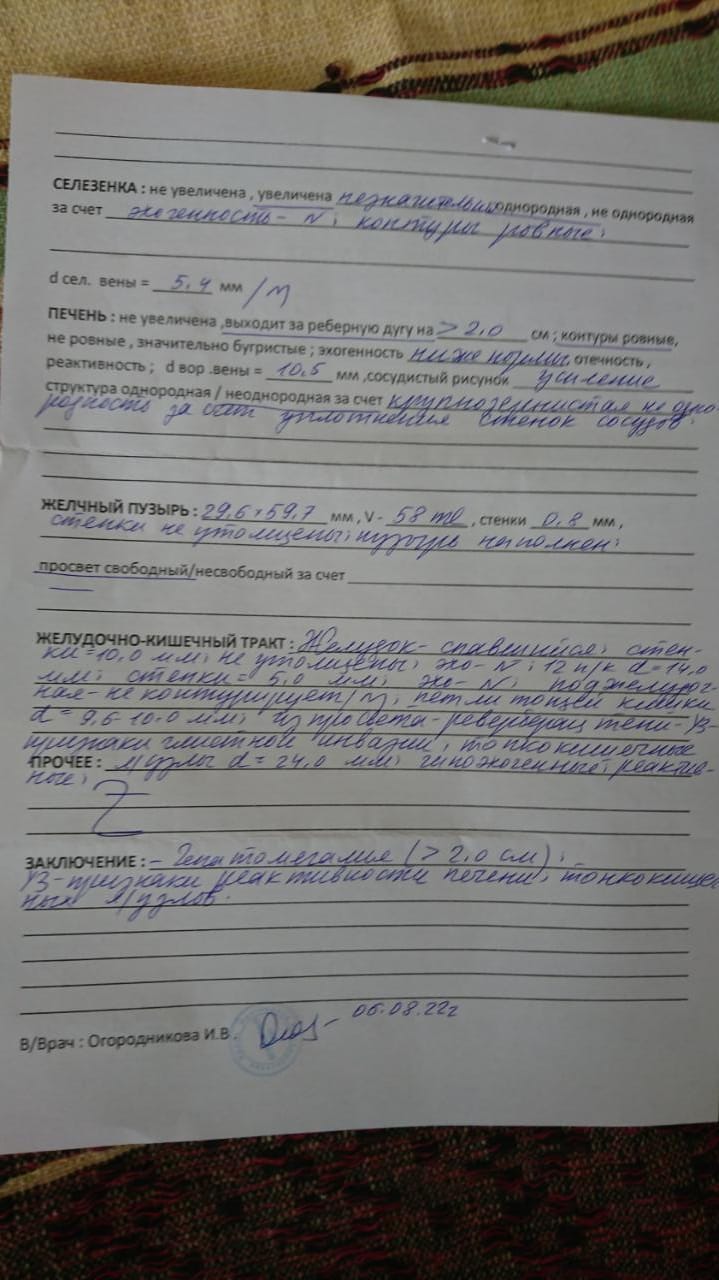 СЕЛЕЗЕНКА : не увеличена , увеличена незначительно однородная , не однородная
за счет эхогенность - N; контуры ровные;
d сел. вены = 5,4 мм /N
ПЕЧЕНЬ : не увеличена ,выходит за реберную дугу на > 2,0 см ; контуры ровные,
не ровные , значительно бугристые ; эхогенность ниже нормы, отечность ,
реактивность ; d вор .вены = 10,5 мм ,сосудистый рисунок усиление
структура однородная / неоднородная за счет крупнозернистая не одно-
родность за счет уплотнения стенок сосудов.
ЖЕЛЧНЫЙ ПУЗЫРЬ : 29,6 x 59,7 мм , V - 58 ml , стенки 0,8 мм ,
стенки не утолщены; пузырь наполнен;
просвет свободный/несвободный за счет
ЖЕЛУДОЧНО-КИШЕЧНЫЙ ТРАКТ : Желудок - спавшийся; стен-
ки = 10,0 мм; не утолщены; эхо - N; 12 п/к d = 14,0
мм; стенки = 5,0 мм; эхо - N; поджелудоч-
ная - не контурирует /N; петли тощей кишки
d = 9,6-10,0 мм; из просвета - ревербрац тени - УЗ-
признаки глистной инвазии, тонкокишечные
ПРОЧЕЕ : л/узлы d = 24,0 мм; гипоэхогенные; реактив-
ные;
ЗАКЛЮЧЕНИЕ : - Гепатомегалия (> 2,0 см);
УЗ-признаки реактивности печени, тонкокишеч-
ных л/узлов.
В/Врач : Огородникова И.В. 06.08.22г